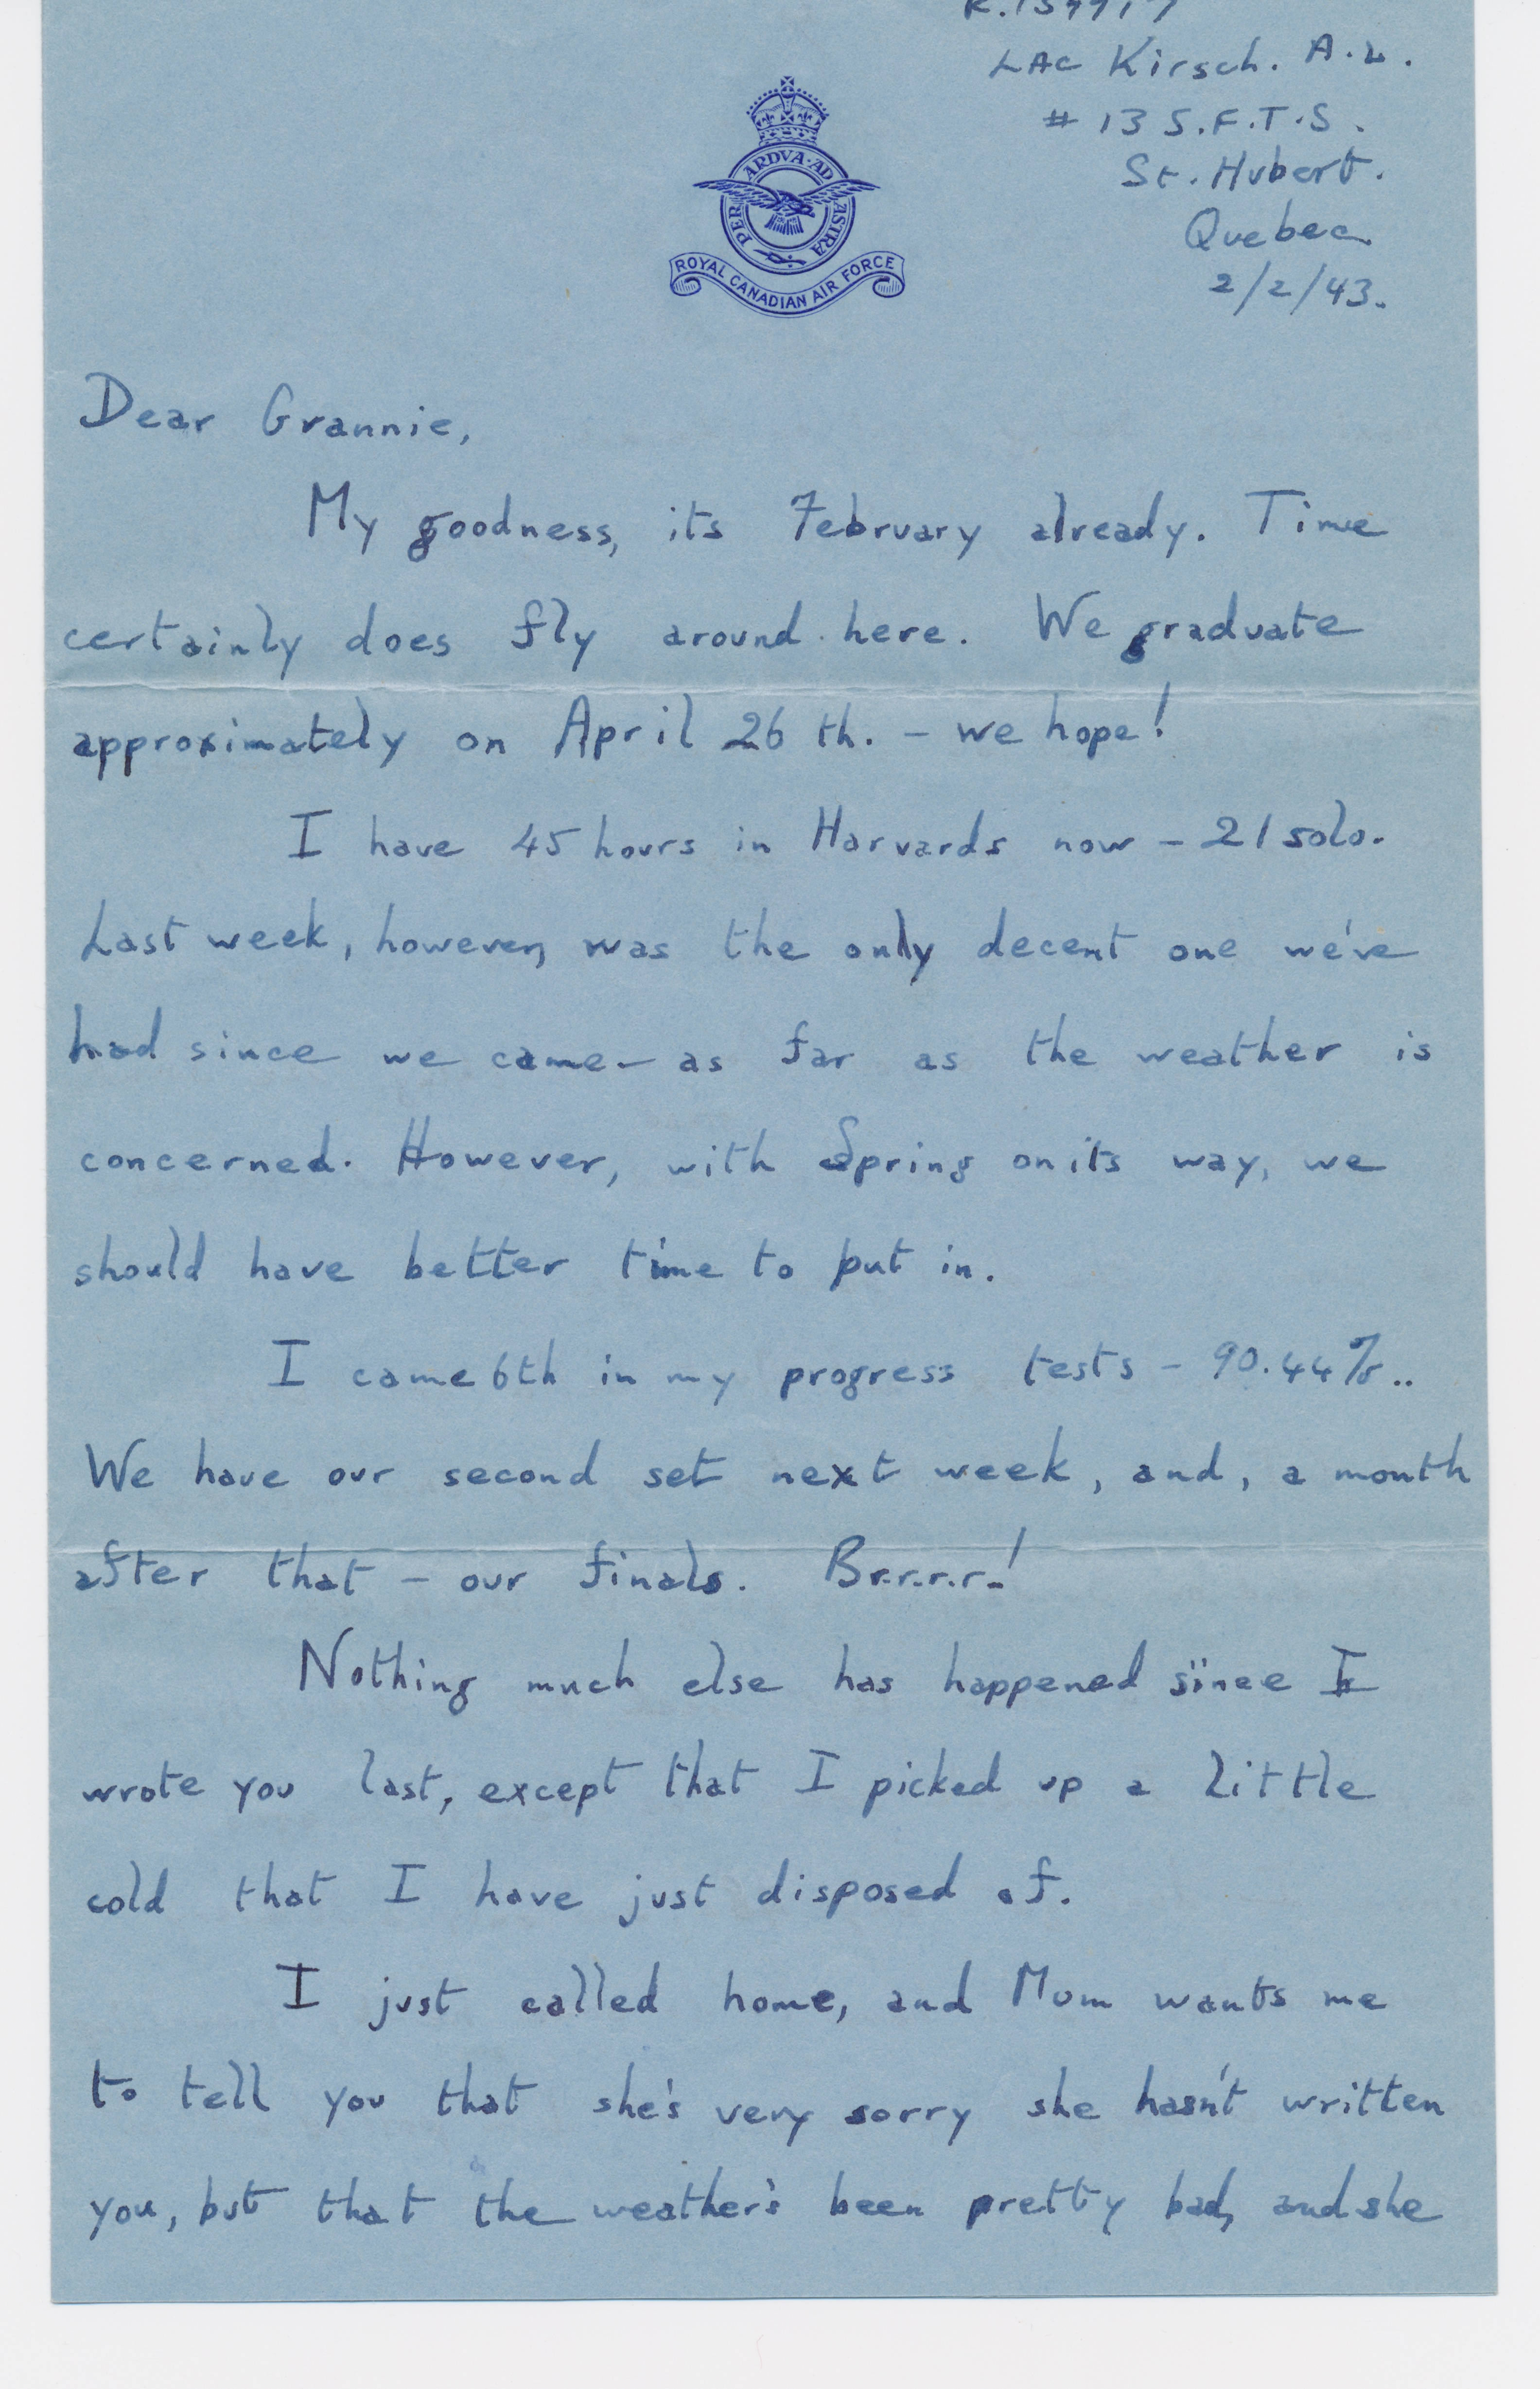 LAC Kirsch. A.L.
# 13 S.F.T.S.
St. Hubert.
Quebec
2/2/43.
PER ARDVA·AD ASTRA
ROYAL CANADIAN AIR FORCE
Dear Grannie,
My goodness, its February already. Time
certainly does fly around here. We graduate
approximately on April 26 th. - we hope!
I have 45 hours in Harvards now - 21 solo.
Last week, however, was the only decent one we've
had since we came - as far as the weather is
concerned. However, with Spring on its way, we
should have better time to put in.
I came 6th in my progress tests - 90.44%..
We have our second set next week, and, a month
after that - our finals. Br.r.r.r.!
Nothing much else has happened since I
wrote you last, except that I picked up a little
cold that I have just disposed of.
I just called home, and Mum wants me
to tell you that she's very sorry she hasn't written
you, but that the weather's been pretty bad, and she